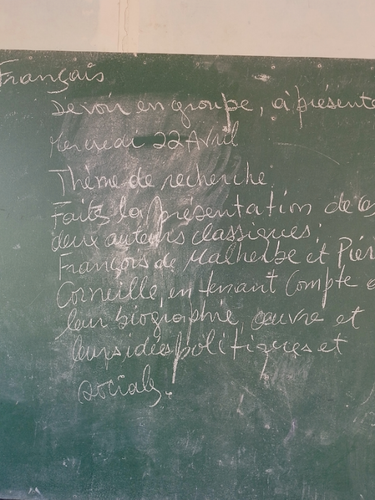 Français
Devoir en groupe, à présente
Mercredi 22 Avril
Thème de recherche
Faites la présentation de ces
deux auteurs classiques,
François de Malherbe et Pier
Corneille, en tenant compte d
leur biographie, œuvre et
leurs idées politiques et
sociales.